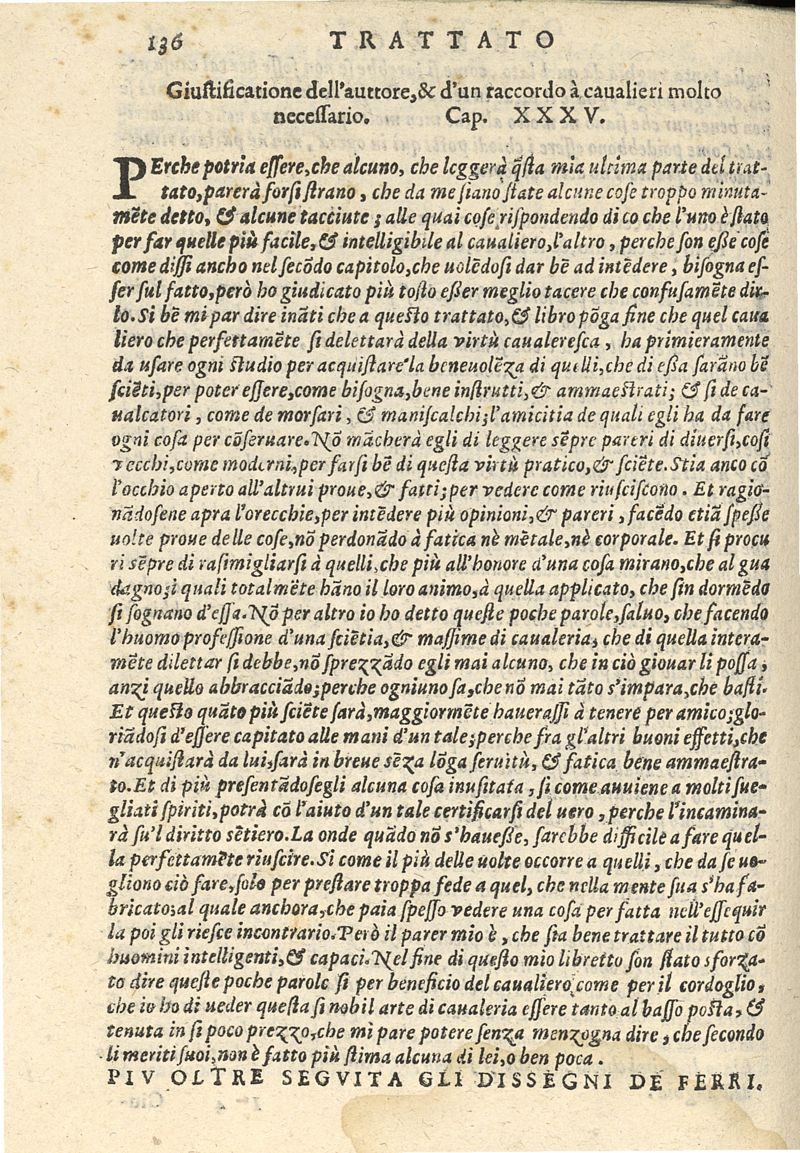 136 TRATTATO
Giustificatione dell'auttore, & d'un raccordo à caualieri molto
necessario. Cap. XXXV.
PErche potria essere, che alcuno, che leggerà q̃sta mia ultima parte del trat-
tato, parerà forsi strano, che da me siano state alcune cose troppo minuta-
mẽte detto, & alcune tacciute; alle quai cose rispondendo dico che l'uno è stato
per far quelle più facile, & intelligibile al caualiero, l'altro, perche son esse cose
come dissi ancho nel secõdo capitolo, che uolẽdosi dar bẽ ad intẽdere, bisogna es-
ser sul fatto, però ho giudicato più tosto esser meglio tacere che confusamẽte dir-
lo. Si bẽ mi par dire inãti che a questo trattato, & libro põga fine che quel caua
liero che perfettamẽte si delettarà della virtù caualeresca, ha primieramente
da usare ogni studio per acquistare la beneuolẽza di quelli, che di essa sarãno bẽ
sciẽti, per poter essere, come bisogna, bene instrutti, & ammaestrati; & si de ca-
ualcatori, come de morsari, & maniscalchi; l'amicitia de quali egli ha da fare
ogni cosa per cõseruare. Nõ mãcherà egli di leggere sẽpre pareri di diuersi, cosi
vecchi, come moderni, per farsi bẽ di questa virtù pratico, & sciẽte. Stia anco cõ
l'occhio aperto all'altrui proue, & fatti; per vedere come riusciscono. Et ragio-
nãdosene apra l'orecchie, per intẽdere più opinioni, & pareri, facẽdo etiã spesse
uolte proue delle cose, nõ perdonãdo à fatica nè mẽtale, nè corporale. Et si procu
ri sẽpre di rasimigliarsi à quelli, che più all'honore d'una cosa mirano, che al gua
dagno; i quali totalmẽte hãno il loro animo, à quella applicato, che sin dormẽdo
si sognano d'essa. Nõ per altro io ho detto queste poche parole, saluo, che facendo
l'huomo professione d'una sciẽtia, & massime di caualeria, che di quella intera-
mẽte dilettar si debbe, nõ sprezzãdo egli mai alcuno, che in ciò giouar li possa,
anzi quello abbracciãdo; perche ogniuno sa, che nõ mai tãto s'impara, che basti.
Et questo quãto più sciẽte sarà, maggiormẽte hauerassi à tenere per amico; glo-
riãdosi d'essere capitato alle mani d'un tale; perche fra gl'altri buoni effetti, che
n'acquistarà da lui, sarà in breue sẽza lõga seruitù, & fatica bene ammaestra-
to. Et di più presentãdosegli alcuna cosa inusitata, si come auuiene a molti sue-
gliati spiriti, potrà cõ l'aiuto d'un tale certificarsi del uero, perche l'incamina-
rà su'l diritto sẽtiero. La onde quãdo nõ s'hauesse, sarebbe difficile a fare quel-
la perfettamẽte riuscire. Si come il più delle uolte occorre a quelli, che da se uo-
gliono ciò fare, solo per prestare troppa fede a quel, che nella mente sua s'ha fa-
bricato; al quale anchora, che paia spesso vedere una cosa per fatta nell'essequir
la poi gli riesce incontrario. Però il parer mio è, che sia bene trattare il tutto cõ
huomini intelligenti, & capaci. Nel fine di questo mio libretto son stato sforza-
to dire queste poche parole si per beneficio del caualiero come per il cordoglio,
che io ho di ueder questa si nobil arte di caualeria essere tanto al basso posta, &
tenuta in si poco prezzo, che mi pare potere senza menzogna dire, che secondo
li meriti suoi, non è fatto più stima alcuna di lei, o ben poca.
PIV OLTRE SEGVITA GLI DISSEGNI DE FERRI.